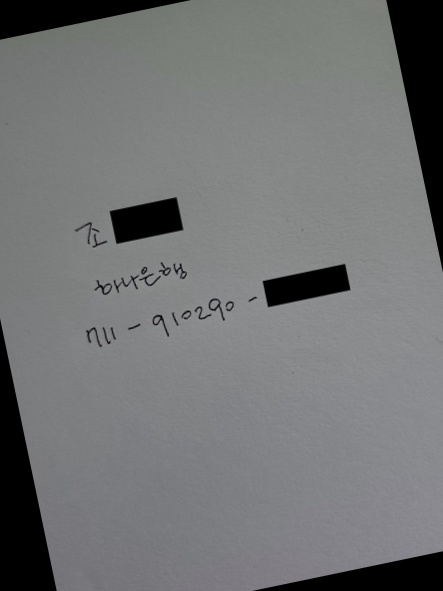 조
하나은행
711-910290-